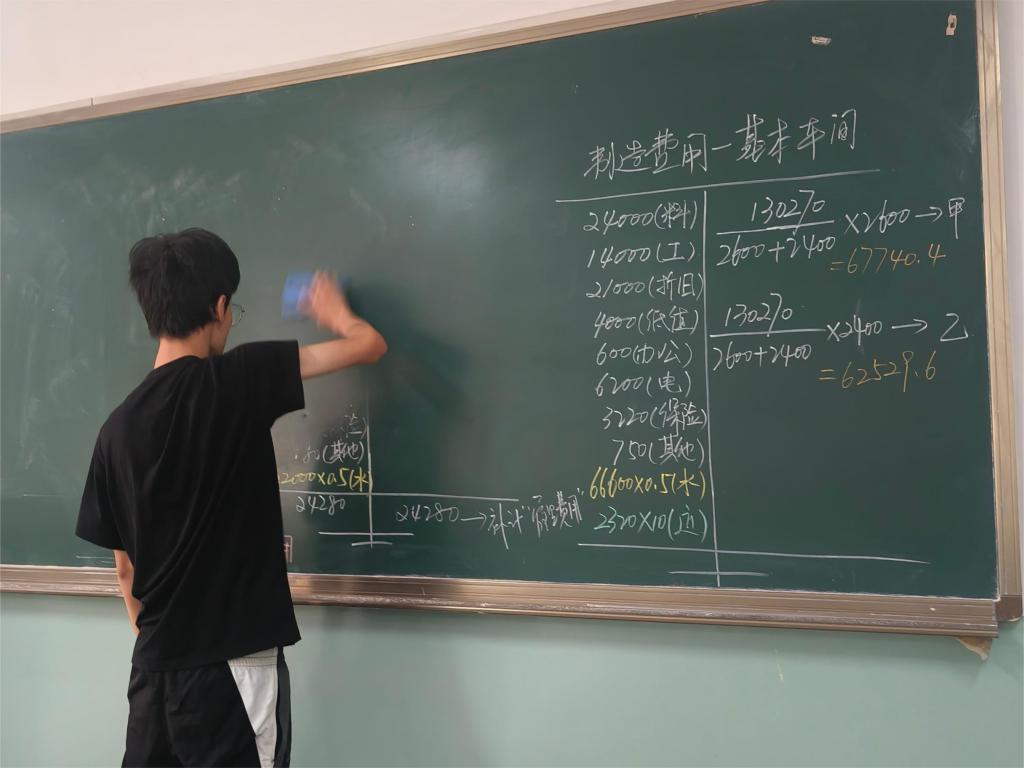 制造费用-基本车间
24000(料)
14000(工)
21000(折旧)
4000(低值)
600(办公)
6200(电)
3220(保险)
750(其他)
66600×0.5(水)
2320×10(运)
130270
2600+2400
×2600→甲
=67740.4
130270
2600+2400
×2400→乙
=62529.6
(其他)
2000×0.5(水
24280
24280→